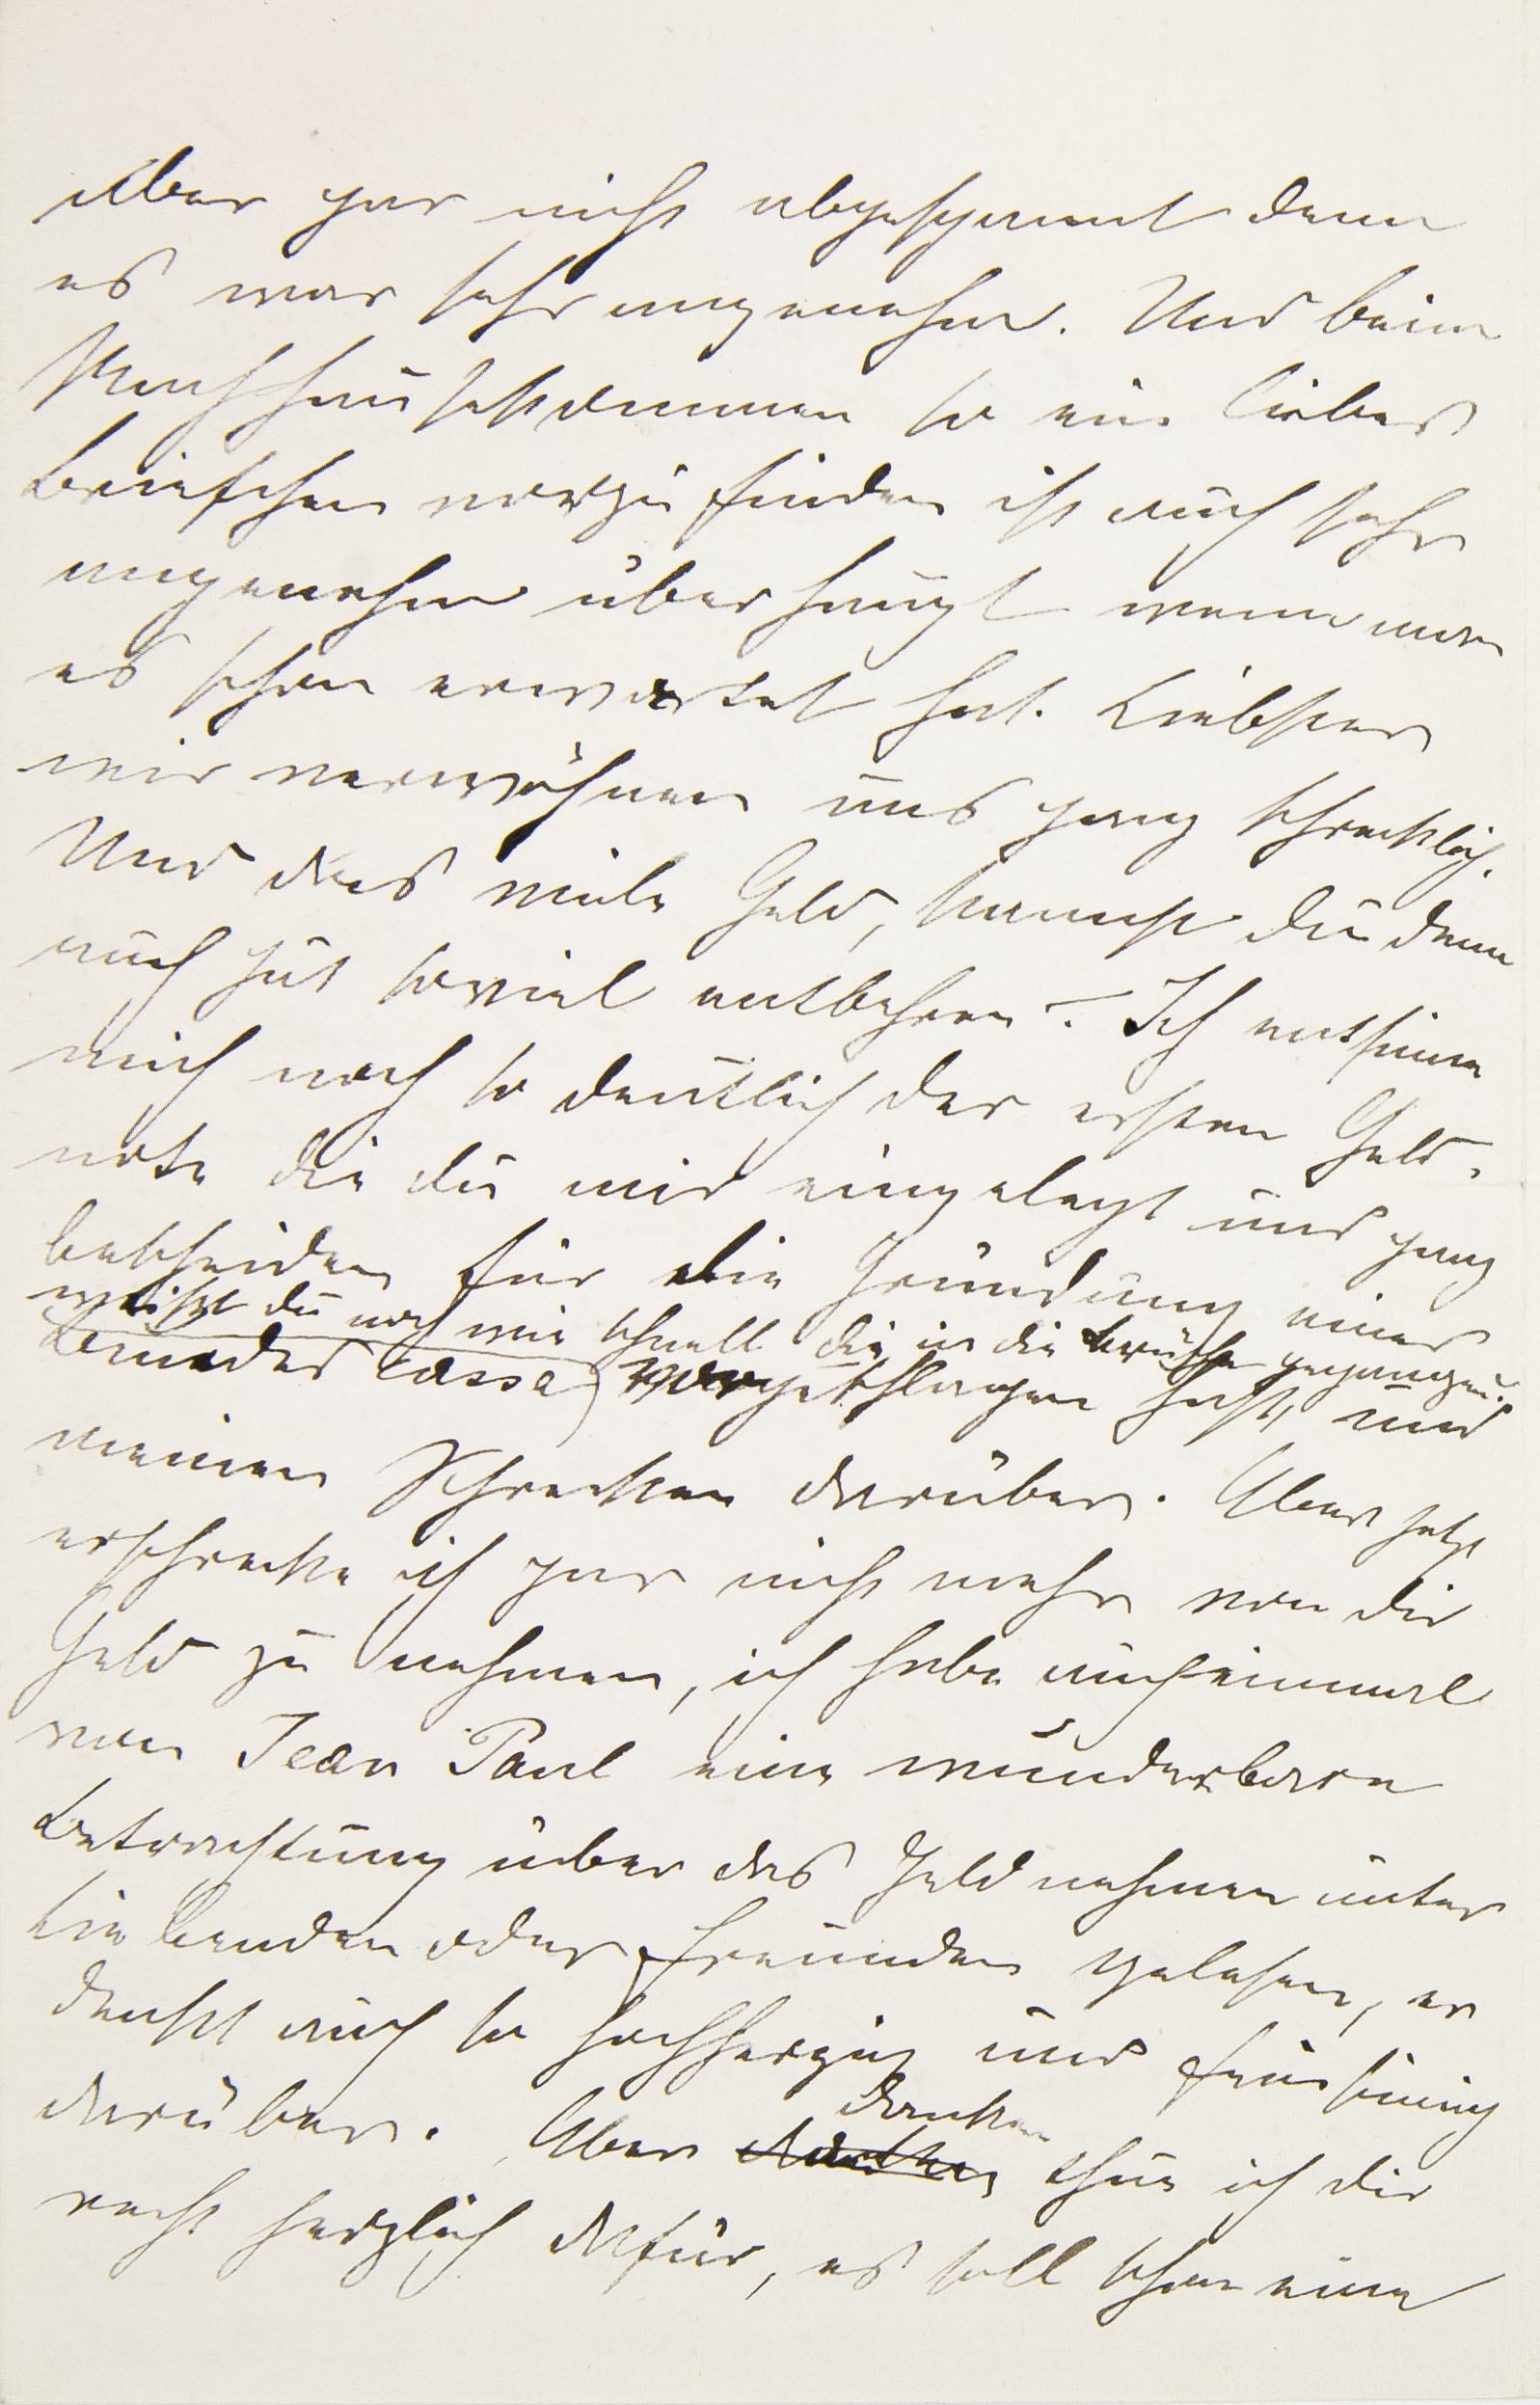 Aber gar nicht abgespannt denn
es war sehr angenehm. Und beim
Nachhausekommen so ein liebes
Briefchen vorzufinden ist auch sehr
angenehm überhaupt wenn man
es schon erwartet hat. Liebster
wir verwöhnen uns ganz schrecklich.
Und das viele Geld, kannst du denn
auch gut soviel entbehren? Ich entsinne
mich noch so deutlich der ersten Geld-
note die du mir eingelegt und ganz
bescheiden für die Gründung einer
weißt du noch wie schnell die in die Brüche gegangen?
Bruder cassa) vorgeschlagen hast, und
meinen Schrecken darüber. Aber jetzt
erschrecke ich gar nicht mehr von dir
Geld zu nehmen, ich habe auch einmal
von Jean Paul eine wunderbare
Betrachtung über das Geldnehmen unter
Liebenden oder Freunden gelesen, er
denkt auch so hochherzig und feinsinnig
darüber. Aber danken thue ich dir
recht herzlich dafür, es soll schon eine